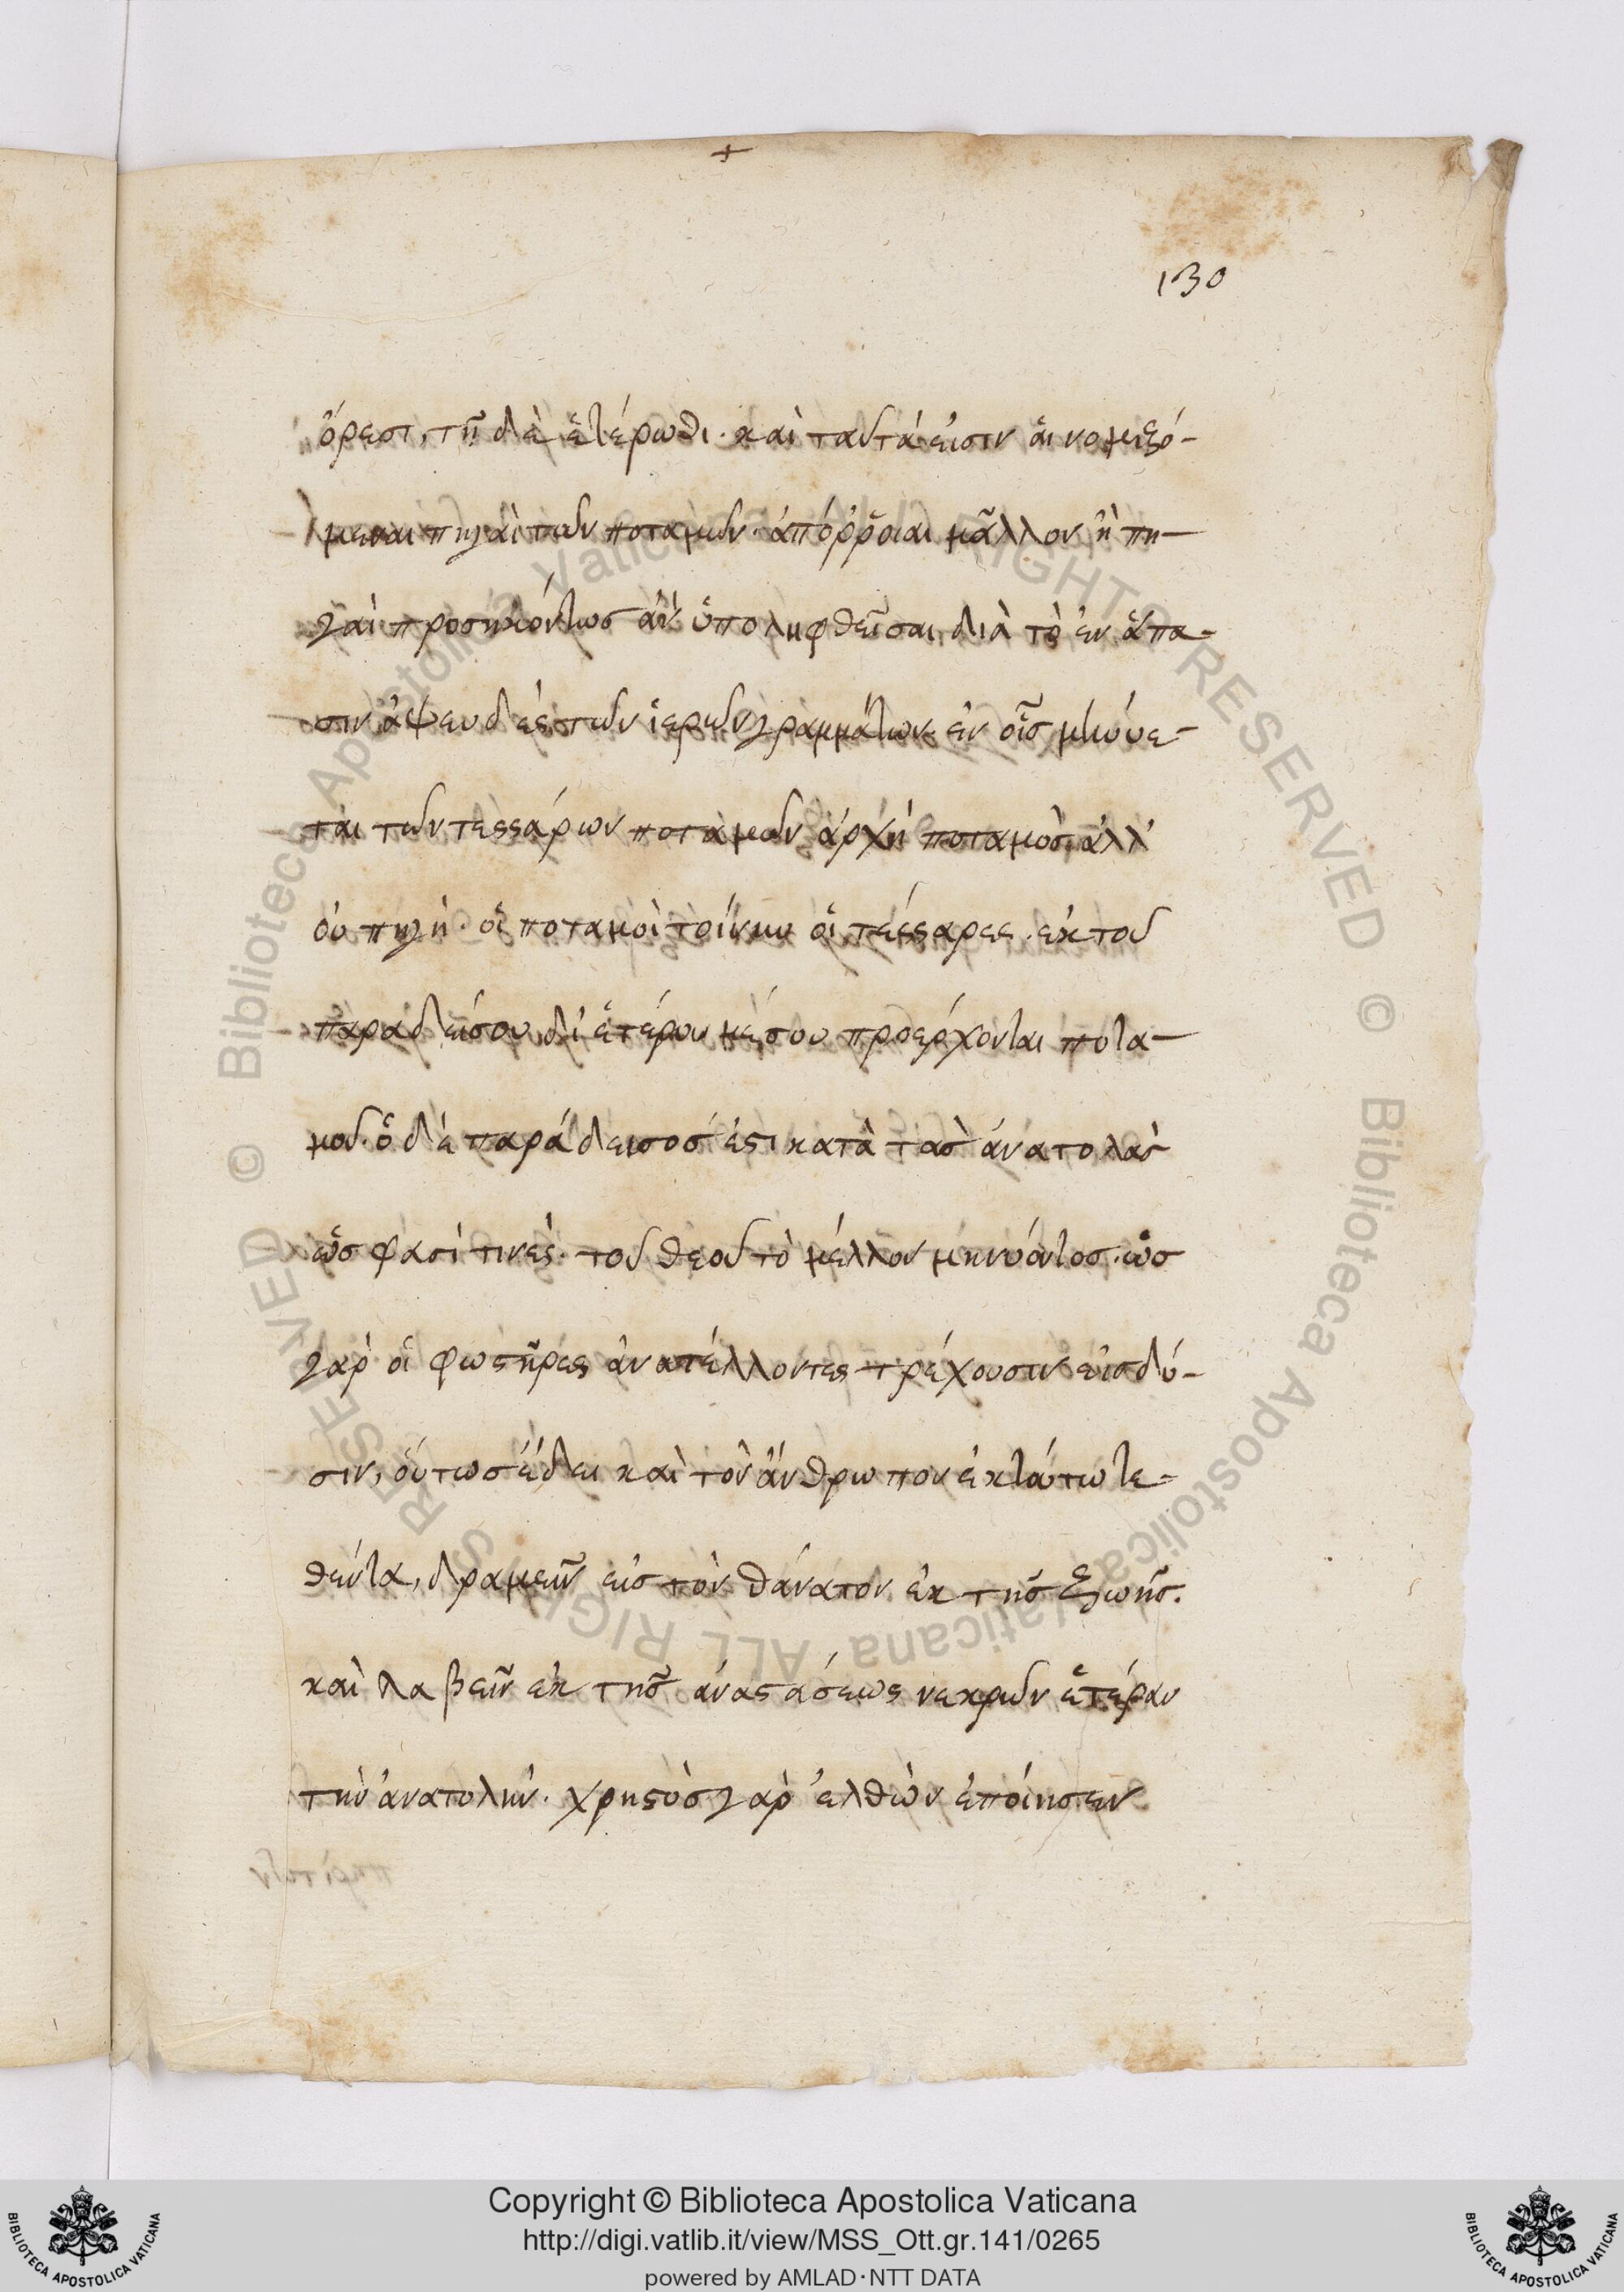 130
ὄρεσι, τῆ δὲ ἑτέρωθι. καὶ ταῦτά εἰσιν αἱ νομιζό-
μεναι πηγαὶ τῶν ποταμῶν. ἀπόρροιαι μᾶλλον ἢ πη-
γαὶ προσηκόντως ἂν ὑποληφθεῖσαι, διὰ τὸ ἐν ἅπα-
σιν ἀψευδὲς τῶν ἱερῶν γραμμάτων. ἐν οἷς μηνύε-
ται τῶν τεσσάρων ποταμῶν ἀρχὴ ποταμὸς, ἀλλ'
οὐ πηγή. οἱ ποταμοὶ τοίνυν οἱ τέσσαρες. ἐκ τοῦ
παραδείσου δι' ἑτέρου μέσου προέρχονται ποτα-
μοῦ. ὁ δὲ παράδεισος ἐστι κατὰ τὰς ἀνατολὰς
ὥς φασί τινες. τοῦ θεοῦ τὸ μέλλον μηνύοντος. ὡς
γὰρ οἱ φωστῆρες ἀνατέλλοντες τρέχουσιν εἰς δύ-
σιν, οὕτως ἔδει καὶ τὸν ἄνθρωπον ἐκ ταύτῳ τε-
θέντα, δραμεῖν εἰς τὸν θάνατον ἐκ τῆς ζωῆς.
καὶ λαβεῖν ἐκ τῆς ἀναστάσεως νεκρῶν ἑτέραν
τὴν ἀνατολήν. χρηστὸς γὰρ ἐλθὼν ἐποίησεν
Copyright © Biblioteca Apostolica Vaticana
http://digi.vatlib.it/view/MSS_Ott.gr.141/0265
powered by AMLAD·NTT DATA
BIBLIOTECA APOSTOLICA VATICANA
BIBLIOTECA APOSTOLICA VATICANA
© Biblioteca Apostolica Vaticana ALL RIGHTS RESERVED
© Biblioteca Apostolica Vaticana ALL RIGHTS RESERVED